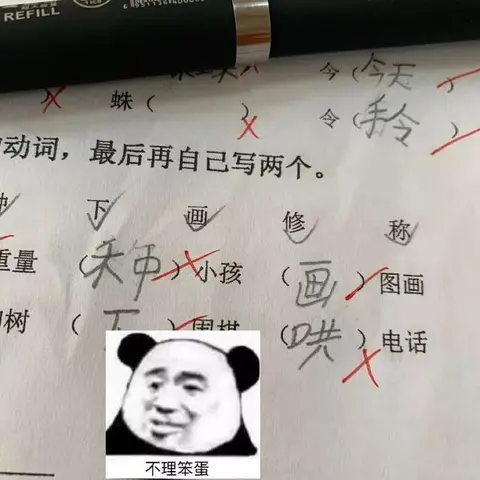 REFILL
今（今天）
蛛（ ） 令（手令）
动词，最后再自己写两个。
种 下 画 修 称
重量 （ ）小孩 （画）图画
树 （下）围棋 （哄）电话
不理笨蛋